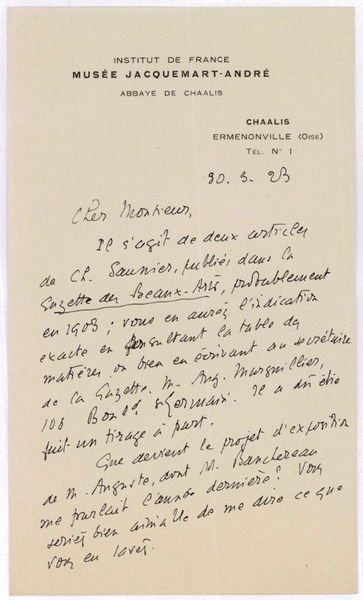 INSTITUT DE FRANCE
MUSÉE JACQUEMART-ANDRÉ
ABBAYE DE CHAALIS
CHAALIS
ERMENONVILLE (OISE)
TÉL. N° 1
30. 3. 23
Cher Monsieur,
Il s'agit de deux articles
de Ch. Saunier, publiés dans la
Gazette des Beaux-Arts, probablement
en 1903 ; vous en aurez l'indication
exacte en consultant la table des
matières ou bien en écrivant au secrétaire
de la Gazette. M. Aug. Marguillier,
106 Boul^d S^t Germain. Il a dû être
fait un tirage à part.
Que devient le projet d'exposition
de M. Auguste, dont M. Banchereau
me parlait l'année dernière ? Vous
seriez bien aimable de me dire ce que
vous en savez.